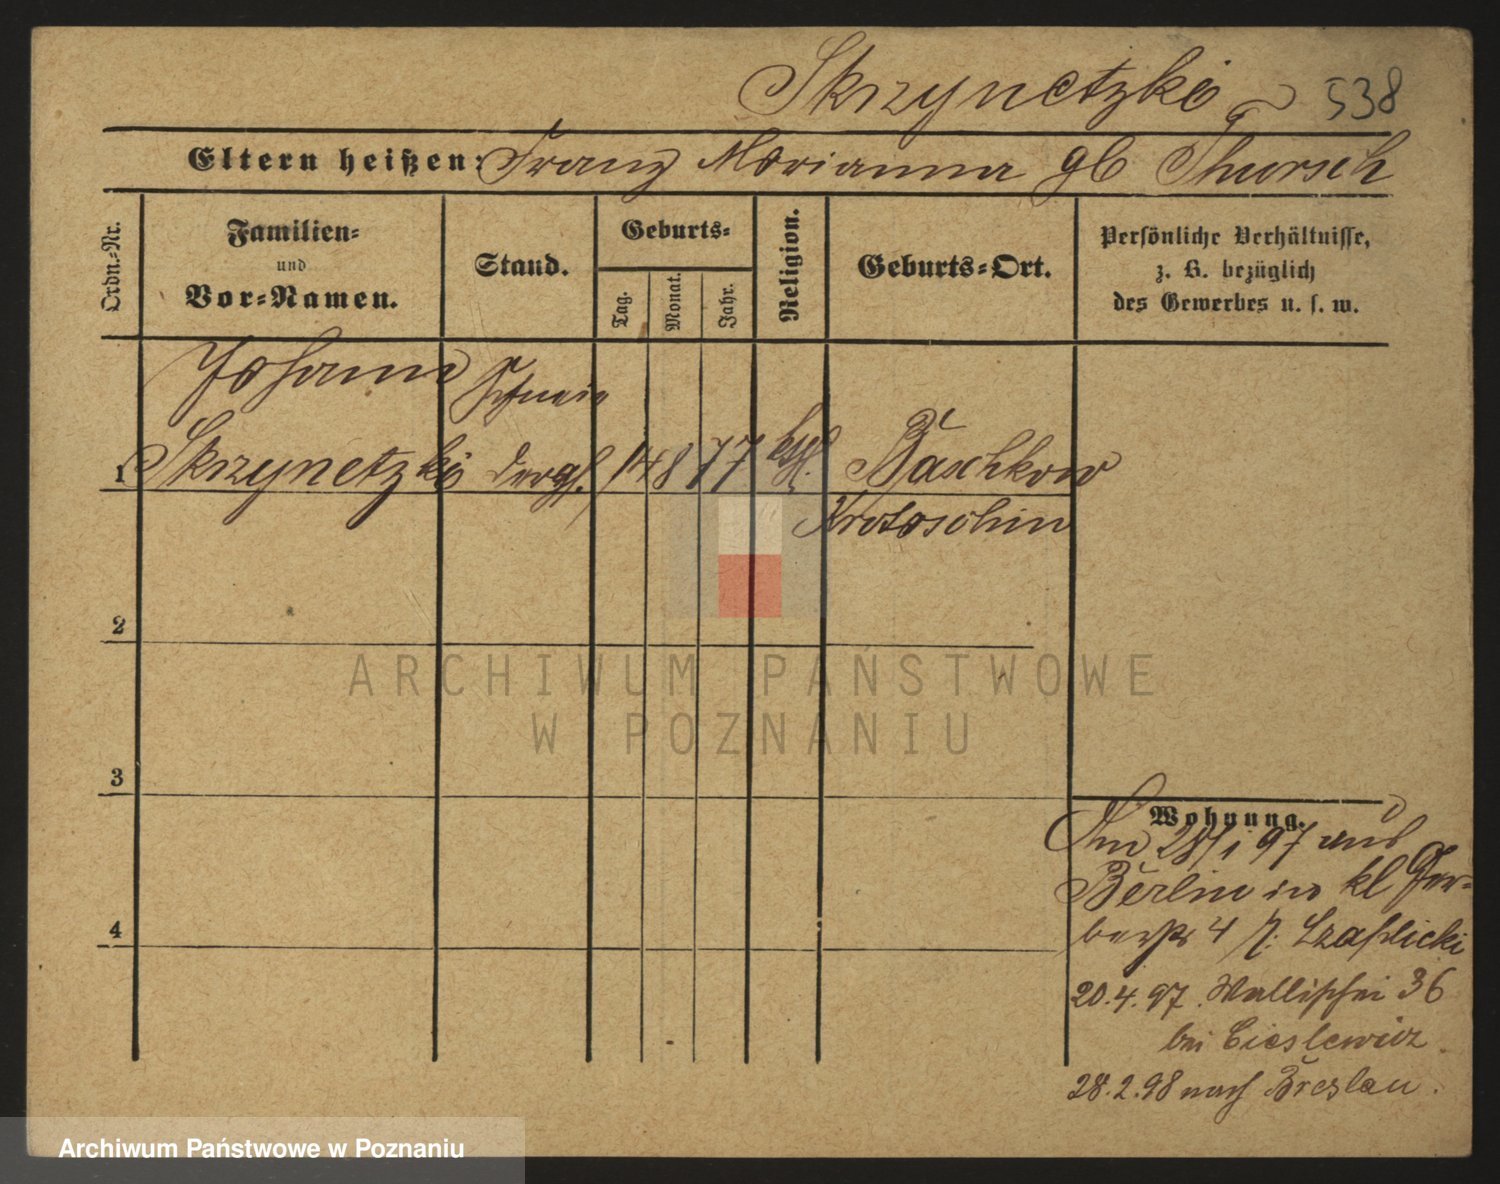 Skrzynetzki 538
Eltern heißen: Franz Marianna gb Thursch
Ordn.-Nr.
Familien-
und
Vor-Namen.
Stand.
Geburts-
Tag.
Monat.
Jahr.
Religion.
Geburts-Ort.
Persönliche Verhältnisse,
z. B. bezüglich
des Gewerbes u. s. w.
Johann Schnei
1 Skrzynetzki dergs. 14 8 77 kth. Baschkow
Krotoschin
2
3
4
Wohnung.
Am 28/1 97 aus
Berlin in kl Ger-
berstr 4 b. Czaplicki
20.4.97. Wallischei 36
bei Cieslewicz
28.2.98 nach Breslau.
ARCHIWUM PAŃSTWOWE
W POZNANIU
Archiwum Państwowe w Poznaniu